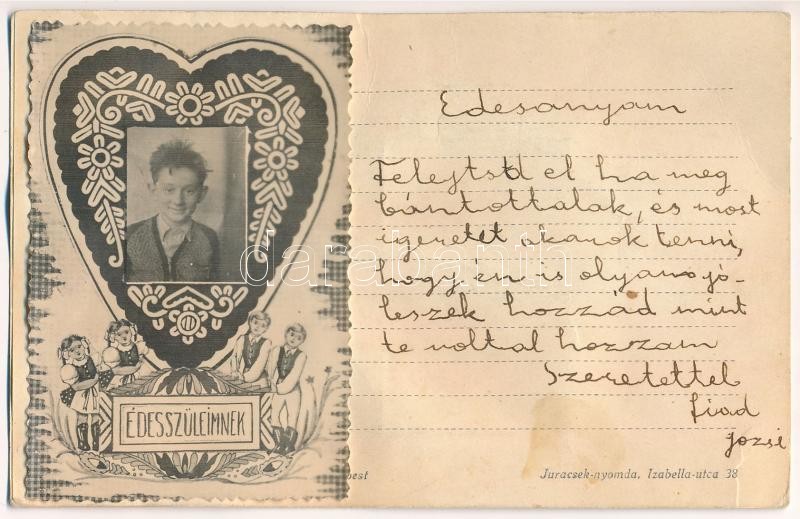 Edesanyam
Felejtsd el ha meg
bántottalak, és most
igeretet akarok tenni,
hogy én is olyan jó-
leszek hozzád mint
te voltal hozzam
Szeretettel
fiad
Jozsi
ÉDESSZÜLEIMNEK
best
Juracsek-nyomda, Izabella-utca 38
darabanth.com